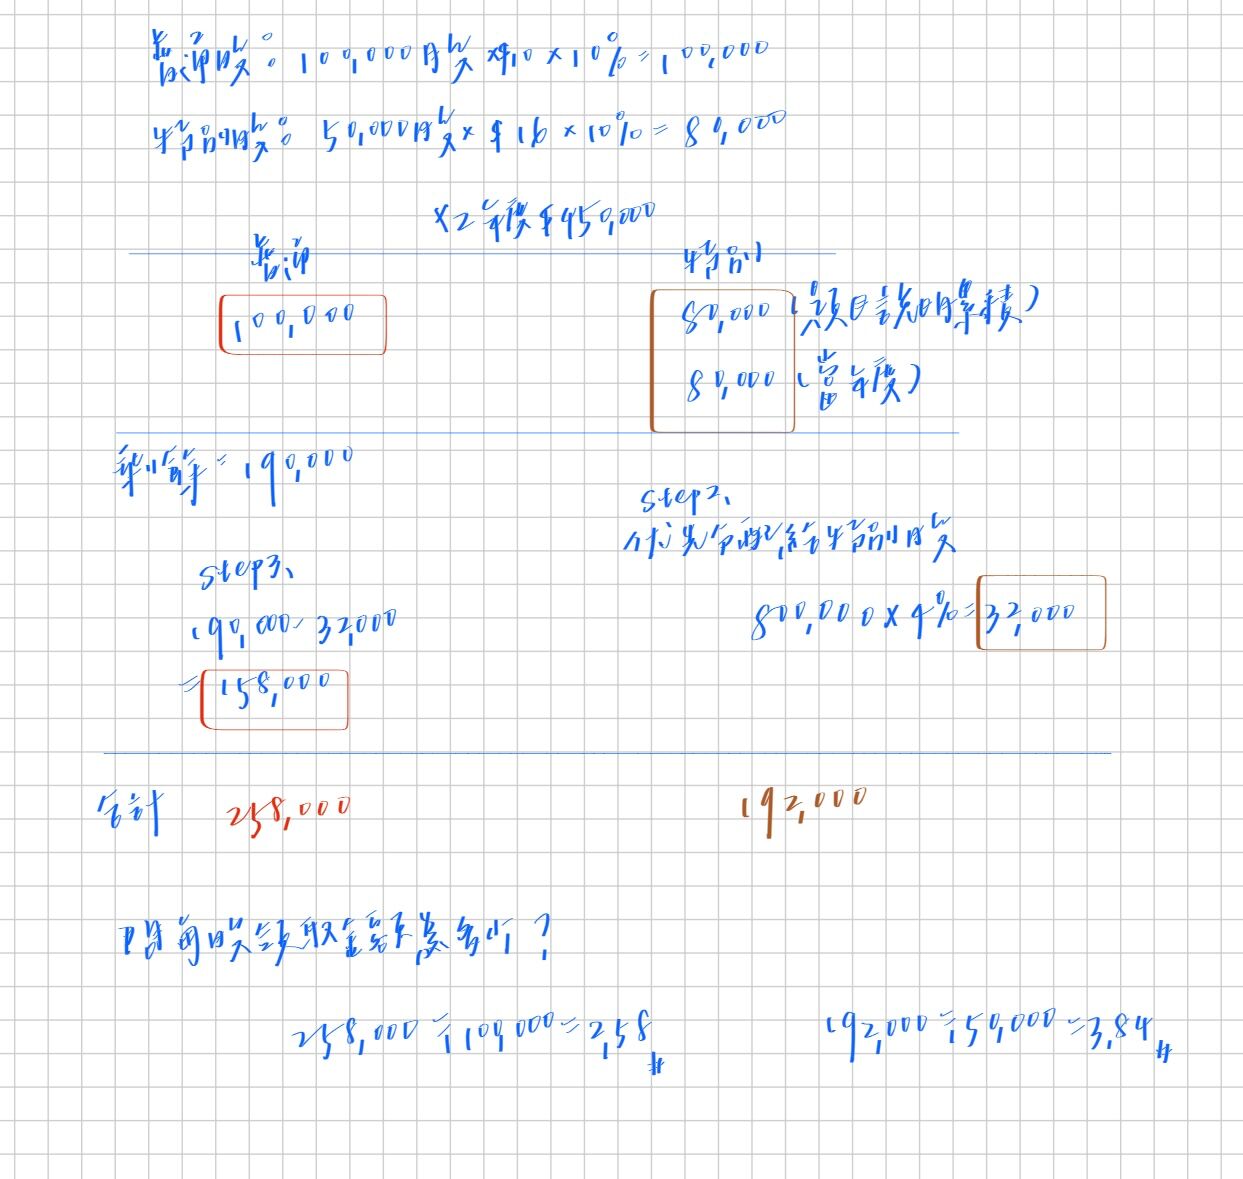 普通股：100,000股×$10×10%=100,000
特別股：50,000股×$16×10%=80,000
×2年度$450,000
普通 特別
100,000 80,000（題目說明累積）
80,000（當年度）
剩餘=190,000
step2、
優先分配給特別股
step3、
190,000-32,000 800,000×4%=32,000
=158,000
合計 258,000 192,000
問每股領取金額為多少？
258,000÷100,000=2.58# 192,000÷50,000=3.84#